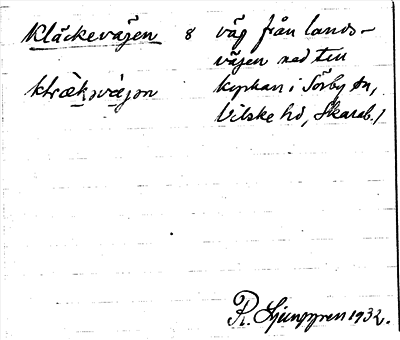 Kläckevägen 8 väg från lands-
vägen ned till
kyrkan i Sörby sn,
Vilske hd, Skarab. l
R. Ljunggren 1932.